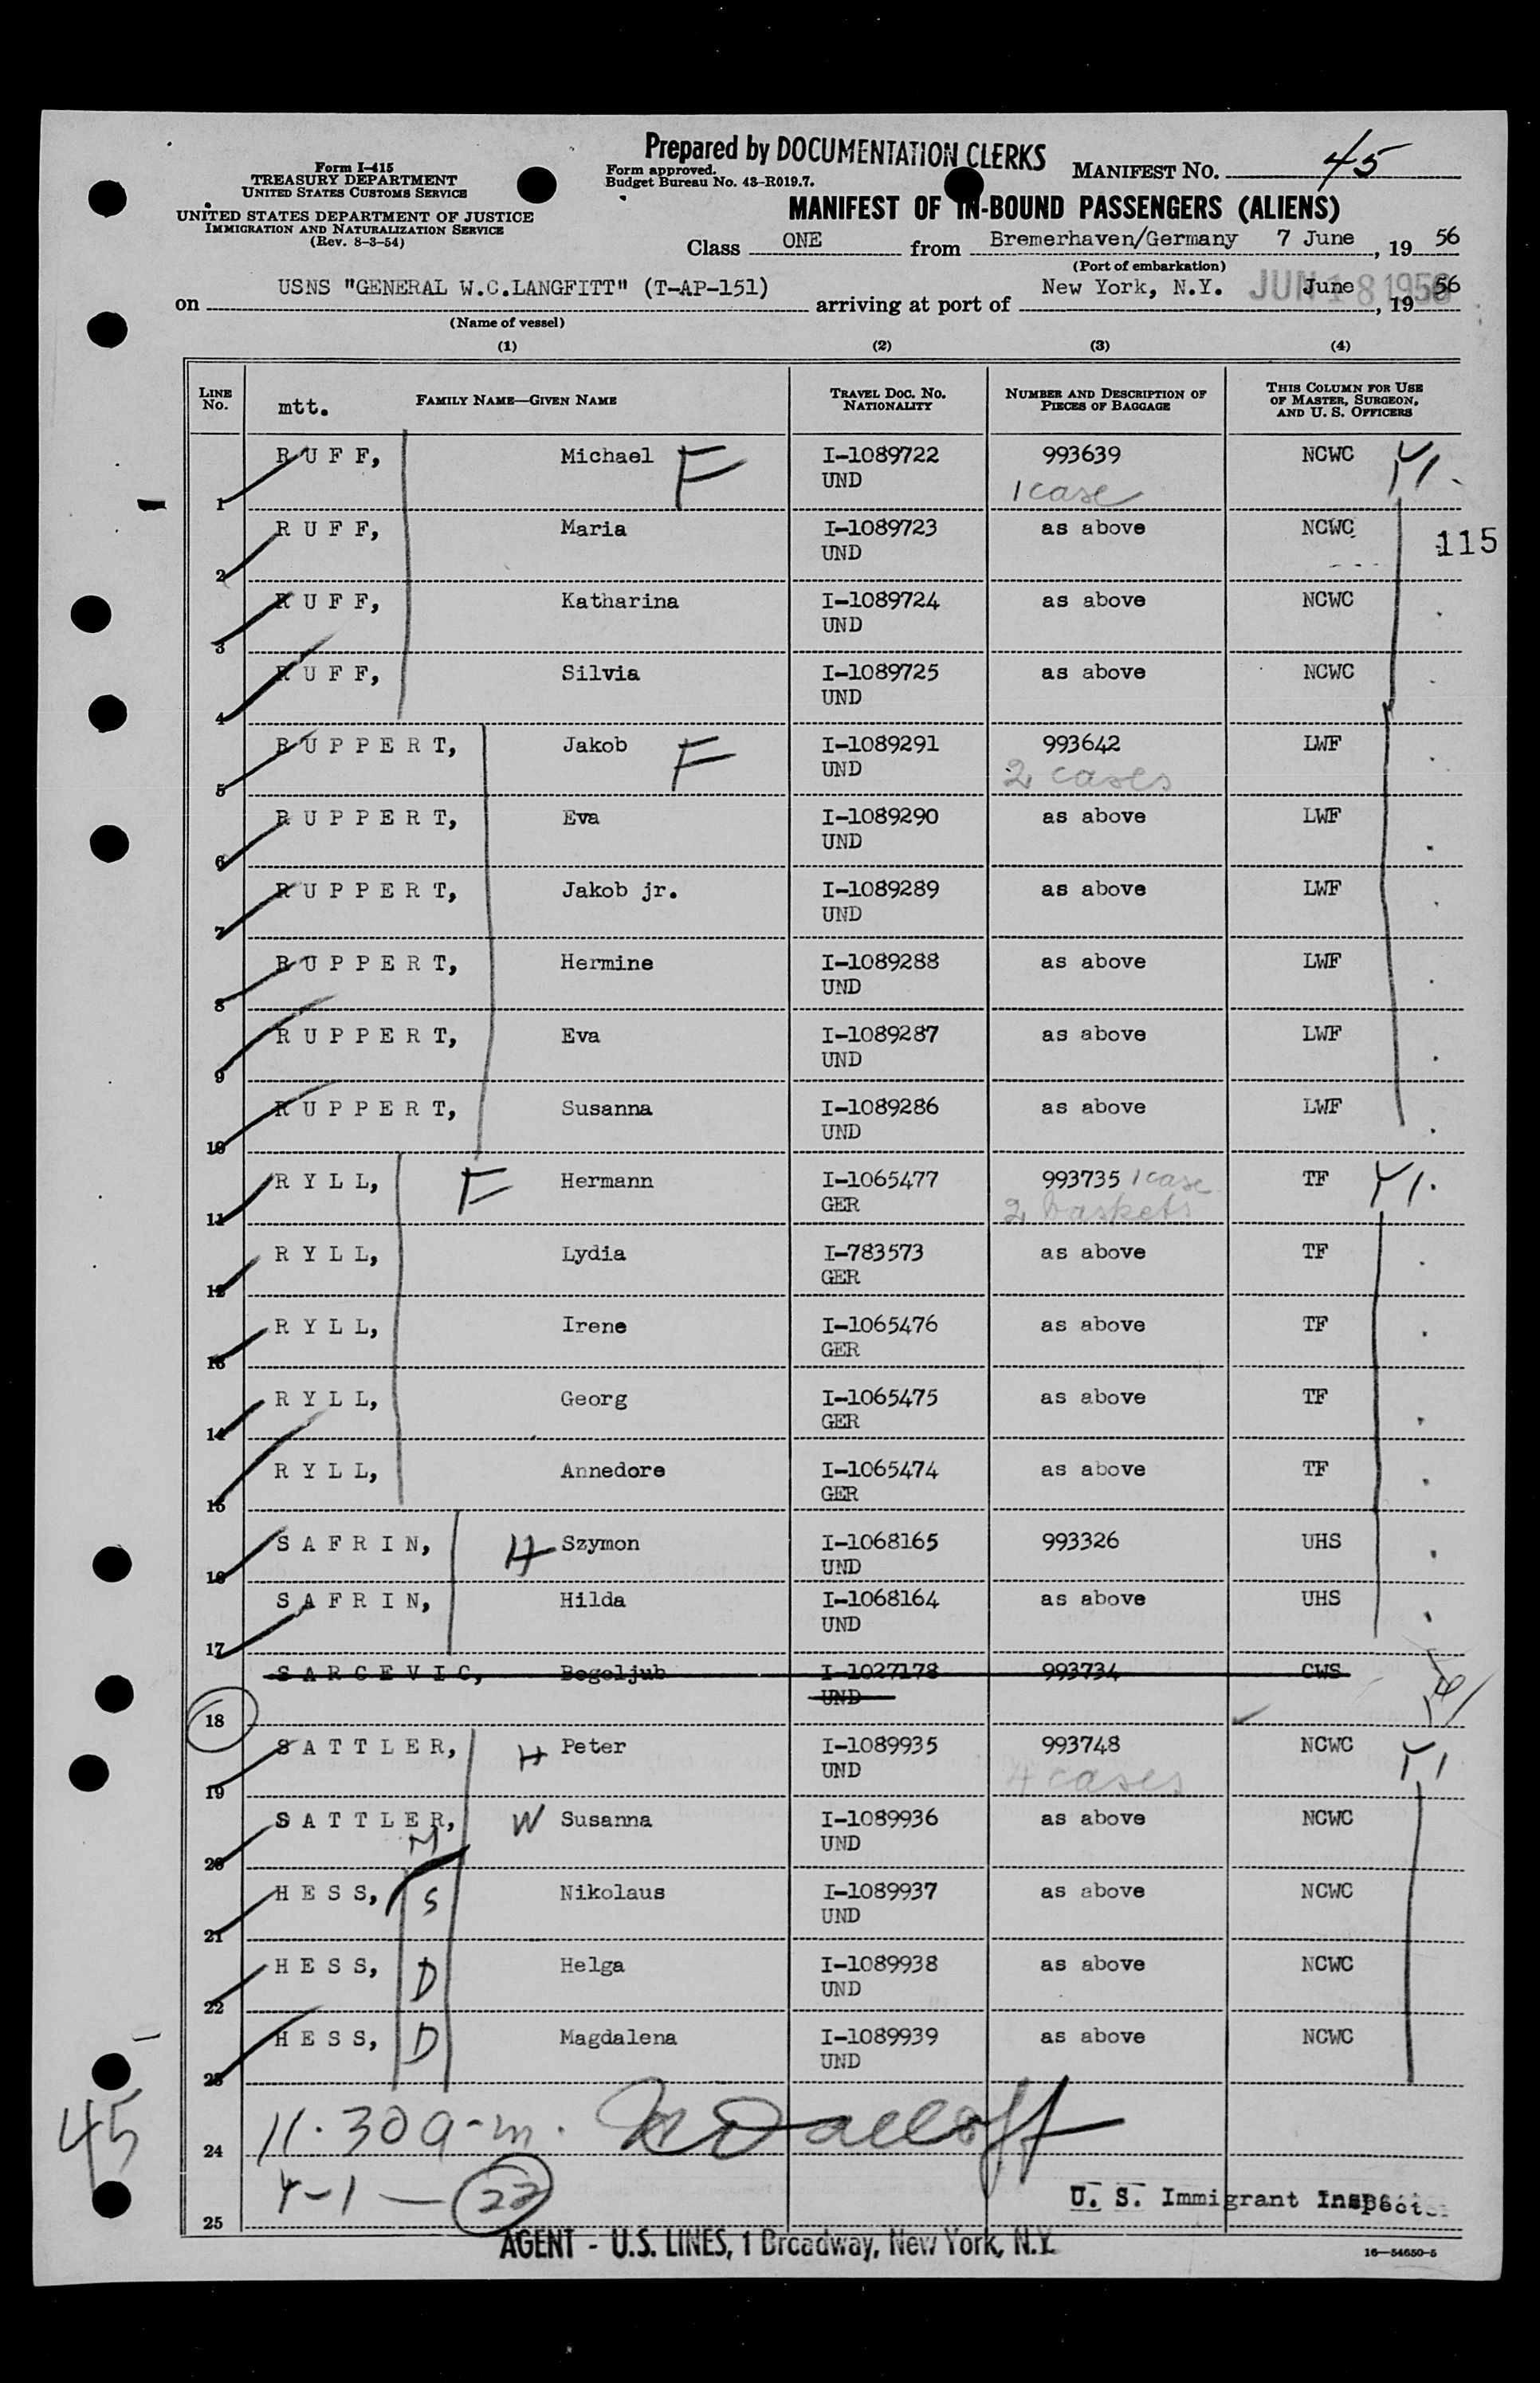 Prepared by DOCUMENTATION CLERKS
Form I-415
TREASURY DEPARTMENT
UNITED STATES CUSTOMS SERVICE
Form approved.
Budget Bureau No. 43-R019.7.
MANIFEST NO. 45
UNITED STATES DEPARTMENT OF JUSTICE
IMMIGRATION AND NATURALIZATION SERVICE
(Rev. 8-3-54)
MANIFEST OF IN-BOUND PASSENGERS (ALIENS)
Class ONE from Bremerhaven/Germany 7 June, 19 56
(Port of embarkation)
on USNS "GENERAL W.C.LANGFITT" (T-AP-151) arriving at port of New York, N.Y. June, 19 56
JUN 18 1956
(Name of vessel)
(1) (2) (3) (4)
LINE No. mtt. FAMILY NAME—GIVEN NAME TRAVEL DOC. NO. NATIONALITY NUMBER AND DESCRIPTION OF PIECES OF BAGGAGE THIS COLUMN FOR USE OF MASTER, SURGEON, AND U. S. OFFICERS
1 RUFF, Michael F I-1089722 UND 993639 1 case NCWC
2 RUFF, Maria I-1089723 UND as above NCWC 115
3 RUFF, Katharina I-1089724 UND as above NCWC
4 RUFF, Silvia I-1089725 UND as above NCWC
5 RUPPERT, Jakob F I-1089291 UND 993642 2 cases LWF
6 RUPPERT, Eva I-1089290 UND as above LWF
7 RUPPERT, Jakob jr. I-1089289 UND as above LWF
8 RUPPERT, Hermine I-1089288 UND as above LWF
9 RUPPERT, Eva I-1089287 UND as above LWF
10 RUPPERT, Susanna I-1089286 UND as above LWF
11 RYLL, F Hermann I-1065477 GER 993735 1 case 2 baskets TF
12 RYLL, Lydia I-783573 GER as above TF
13 RYLL, Irene I-1065476 GER as above TF
14 RYLL, Georg I-1065475 GER as above TF
15 RYLL, Annedore I-1065474 GER as above TF
16 SAFRIN, H Szymon I-1068165 UND 993326 UHS
17 SAFRIN, Hilda I-1068164 UND as above UHS
18 SARCEVIC, Bogoljub I-1027178 UND 993734 CWS
19 SATTLER, H Peter I-1089935 UND 993748 4 cases NCWC
20 SATTLER, W Susanna I-1089936 UND as above NCWC
M
21 HESS, S Nikolaus I-1089937 UND as above NCWC
22 HESS, D Helga I-1089938 UND as above NCWC
23 HESS, D Magdalena I-1089939 UND as above NCWC
45
24 11.30 a-m.
25 4-1 — 22 U. S. Immigrant Inspector
AGENT - U.S. LINES, 1 Broadway, New York, N.Y.
16—54650-5